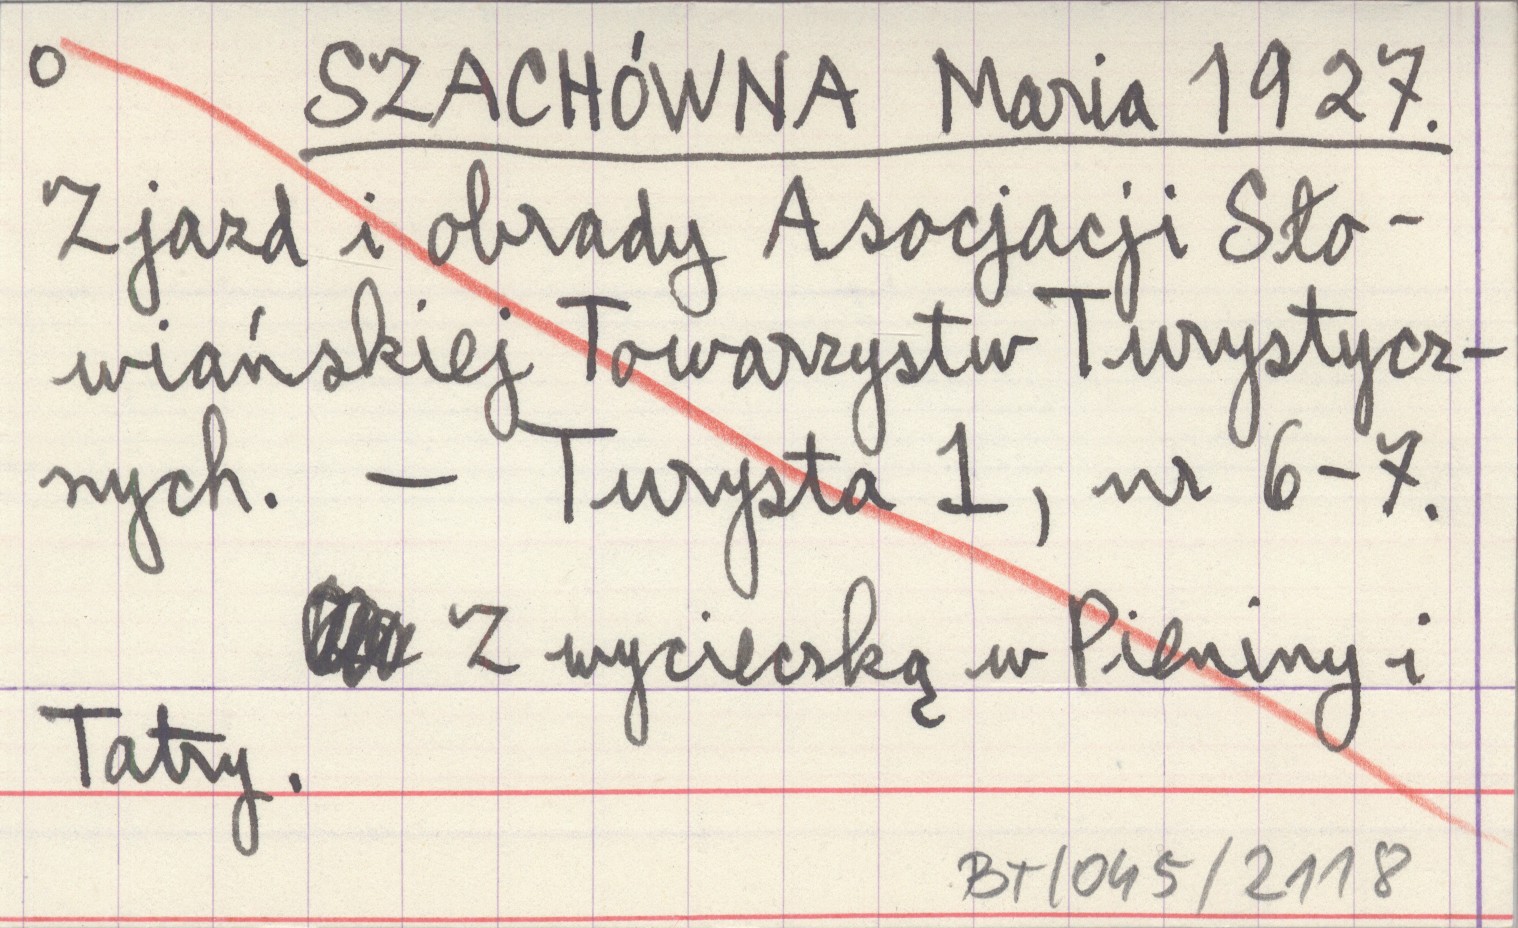 o SZACHÓWNA Maria 1927.
Zjazd i obrady Asocjacji Sło-
wiańskiej Towarzystw Turystycz-
nych. — Turysta 1, nr 6-7.
Z wycieczką w Pieniny i
Tatry.
BT/045/2118